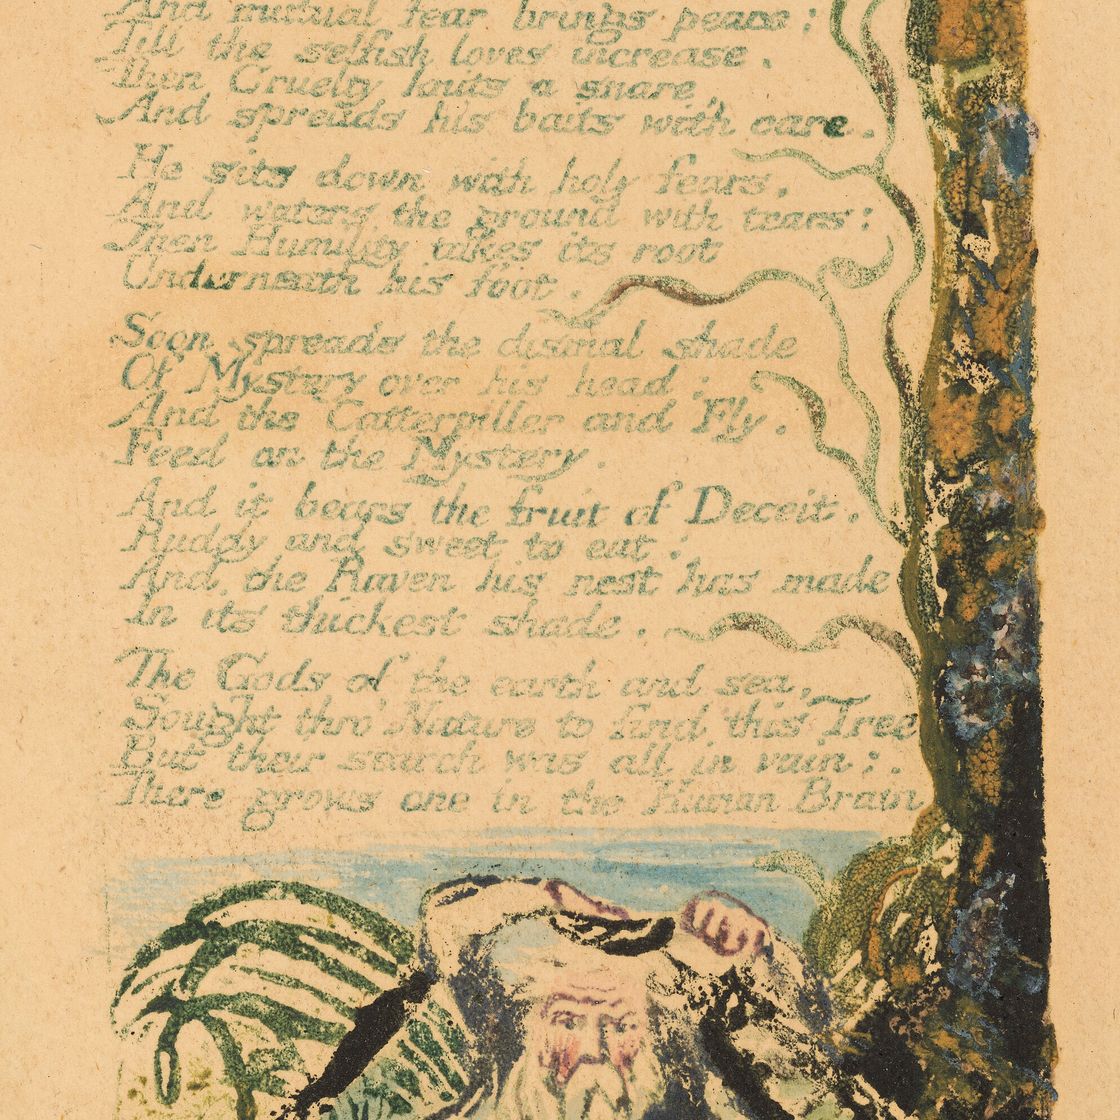 And mutual fear brings peace;
Till the selfish loves increase.
Then Cruelty knits a snare,
And spreads his baits with care.
He sits down with holy fears,
And waters the ground with tears:
Then Humility takes its root
Underneath his foot.
Soon spreads the dismal shade
Of Mystery over his head;
And the Catterpiller and Fly,
Feed on the Mystery.
And it bears the fruit of Deceit,
Ruddy and sweet to eat:
And the Raven his nest has made
In its thickest shade.
The Gods of the earth and sea,
Sought thro' Nature to find this Tree
But their search was all in vain:
There grows one in the Human Brain